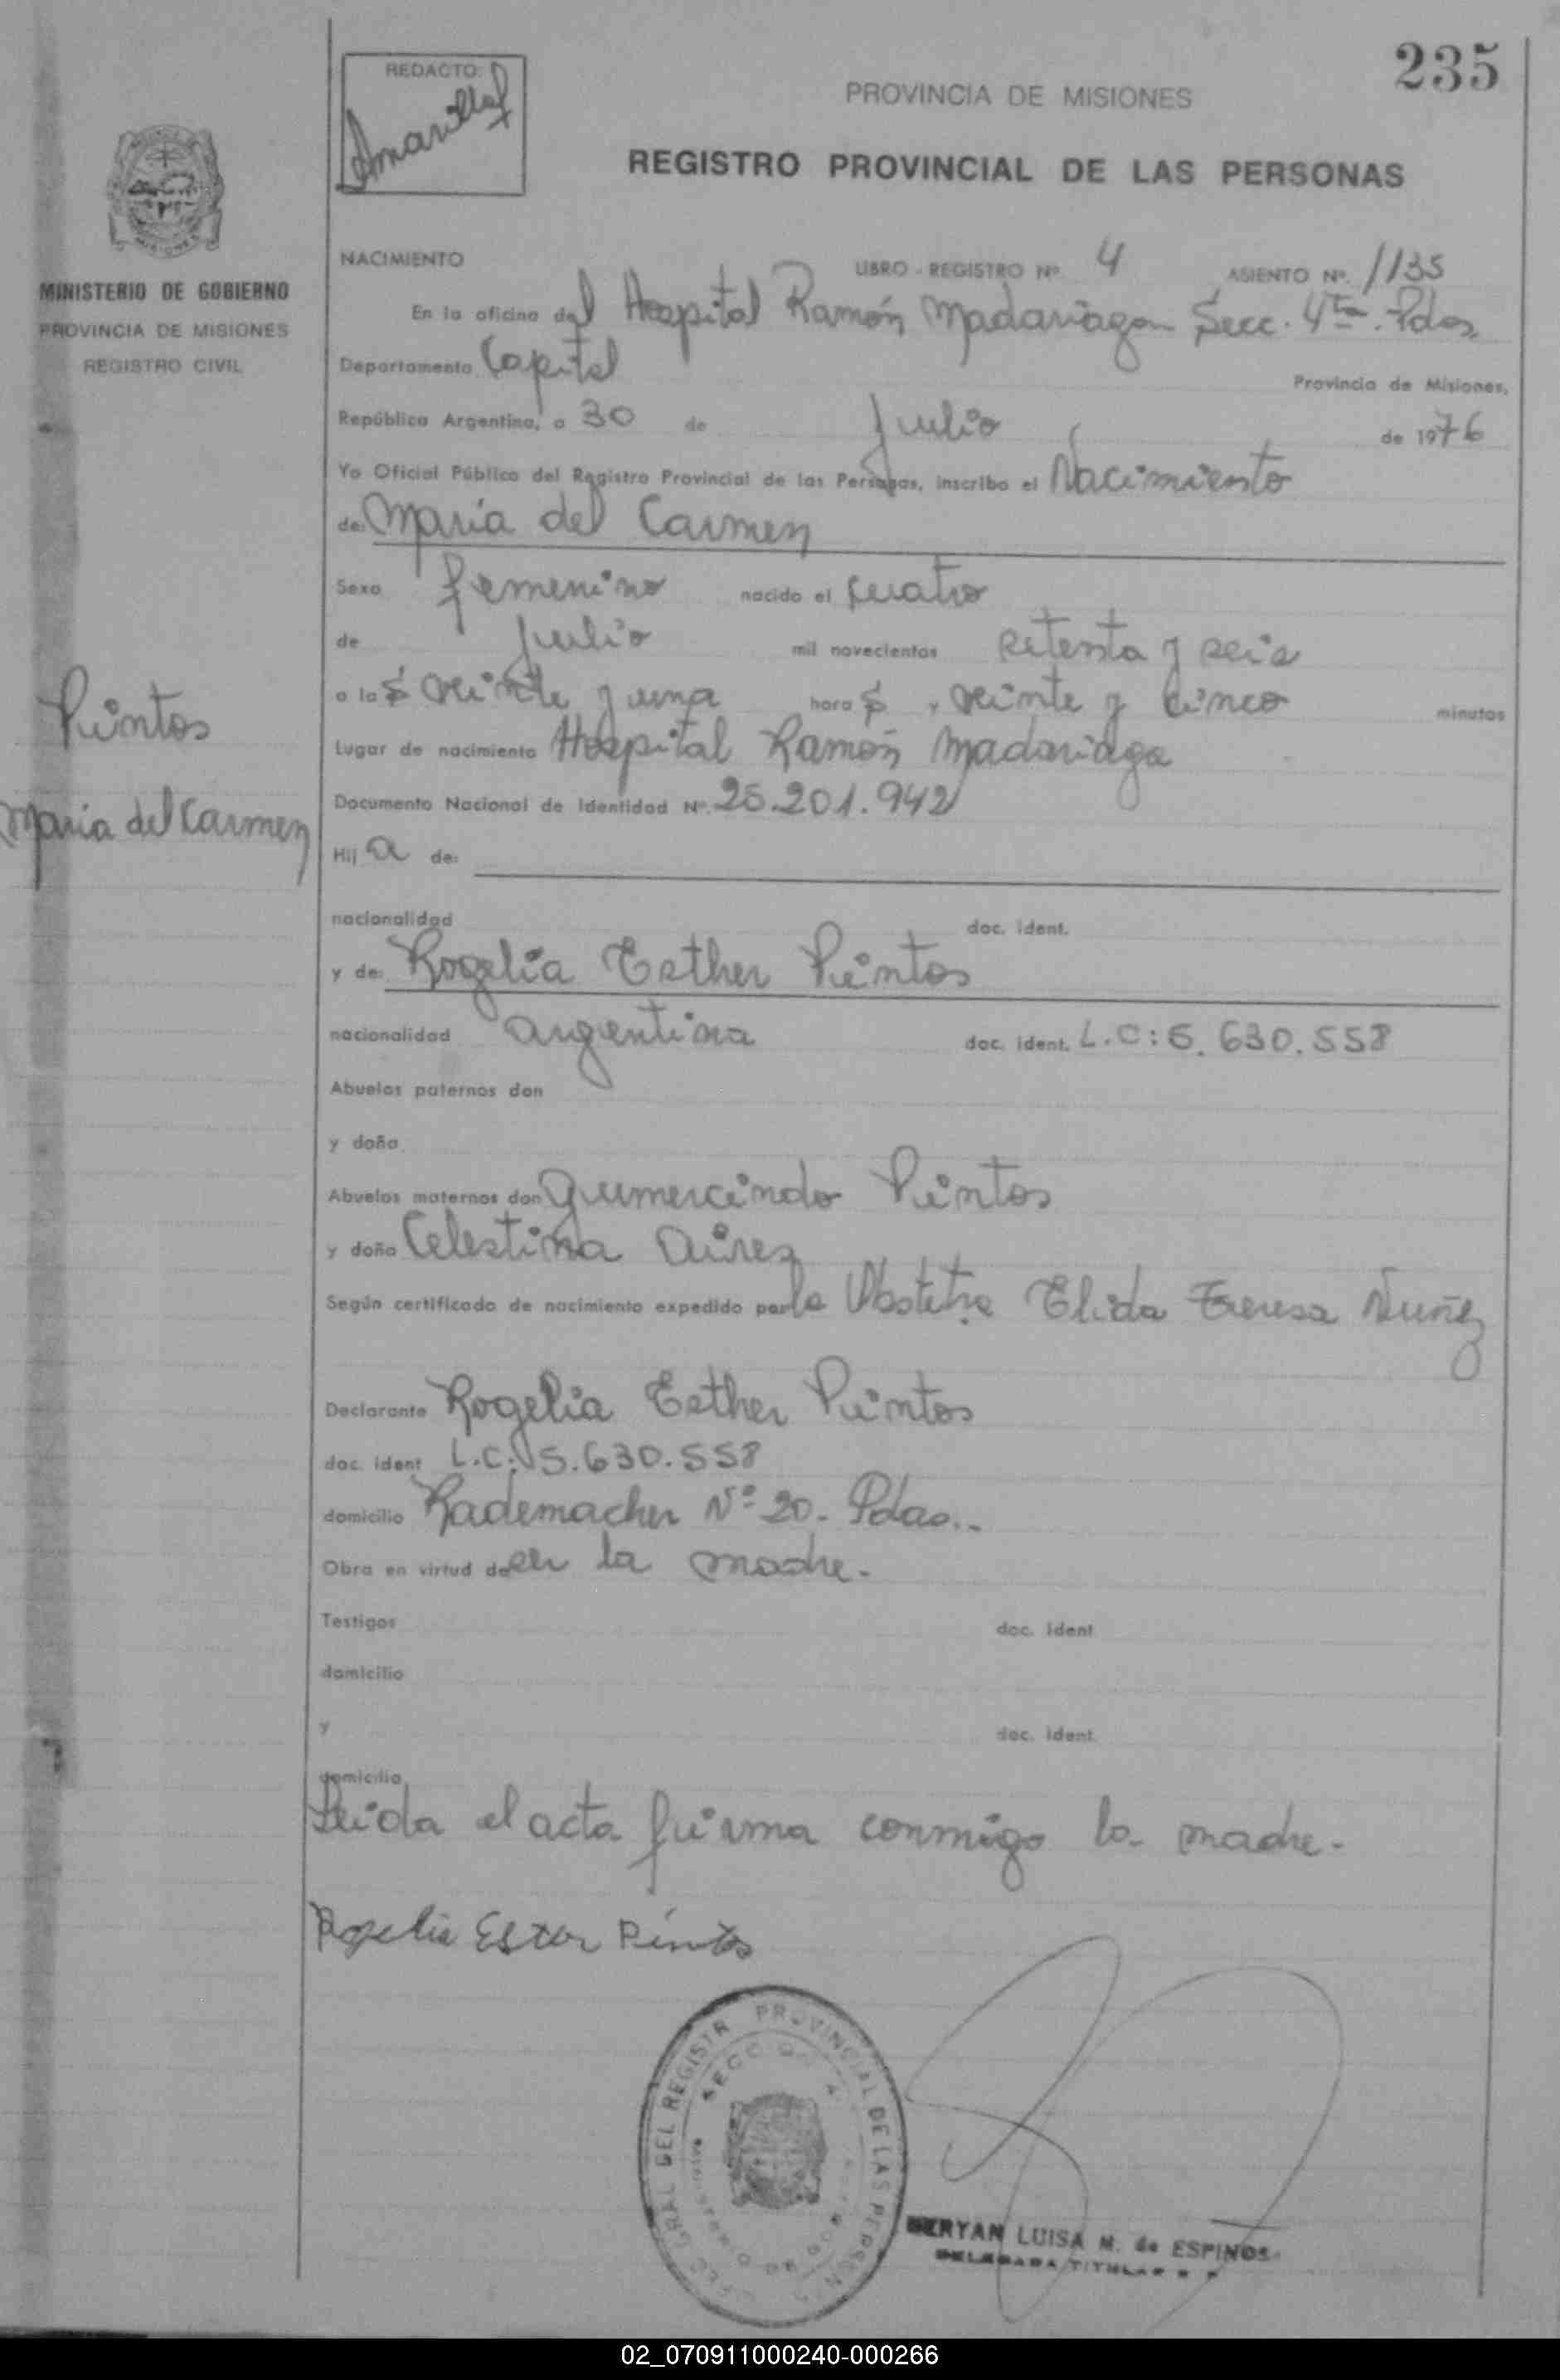 235
REDACTO:
Amarilla
PROVINCIA DE MISIONES
REGISTRO PROVINCIAL DE LAS PERSONAS
MINISTERIO DE GOBIERNO
PROVINCIA DE MISIONES
REGISTRO CIVIL
NACIMIENTO LIBRO - REGISTRO Nº 4 ASIENTO Nº 1135
En la oficina del Hospital Ramón Madariaga Secc. 4ta. Pdas.
Departamento Capital Provincia de Misiones,
República Argentina, a 30 de Julio de 1976
Yo Oficial Público del Registro Provincial de las Personas, inscribo el Nacimiento
de: María del Carmen
Sexo femenino nacido el cuatro
de Julio mil novecientos setenta y seis
a las veinte y una horas, veinte y cinco minutos
Pintos
Lugar de nacimiento Hospital Ramón Madariaga
Documento Nacional de Identidad Nº. 25.201.942
María del Carmen
Hij a de:
nacionalidad doc. ident.
y de: Rogelia Esther Pintos
nacionalidad argentina doc. ident. L.C: 5.630.558
Abuelos paternos don
y doña
Abuelos maternos don Gumercindo Pintos
y doña Celestina Aires
Según certificado de nacimiento expedido por la Obstetra Elida Teresa Nuñez
Declarante Rogelia Esther Pintos
doc. ident L.C: 5.630.558
domicilio Rademacher Nº 20. Pdas..
Obra en virtud de ser la madre.
Testigos doc. ident
domicilio
y doc. ident.
domicilio
Leida el acta firma conmigo la madre.
Rogelia Ester Pintos
PROVINCIAL DE LAS PERSON
GRAL DEL REGISTR
SECC
LUISA M. de ESPINOS
02_070911000240-000266